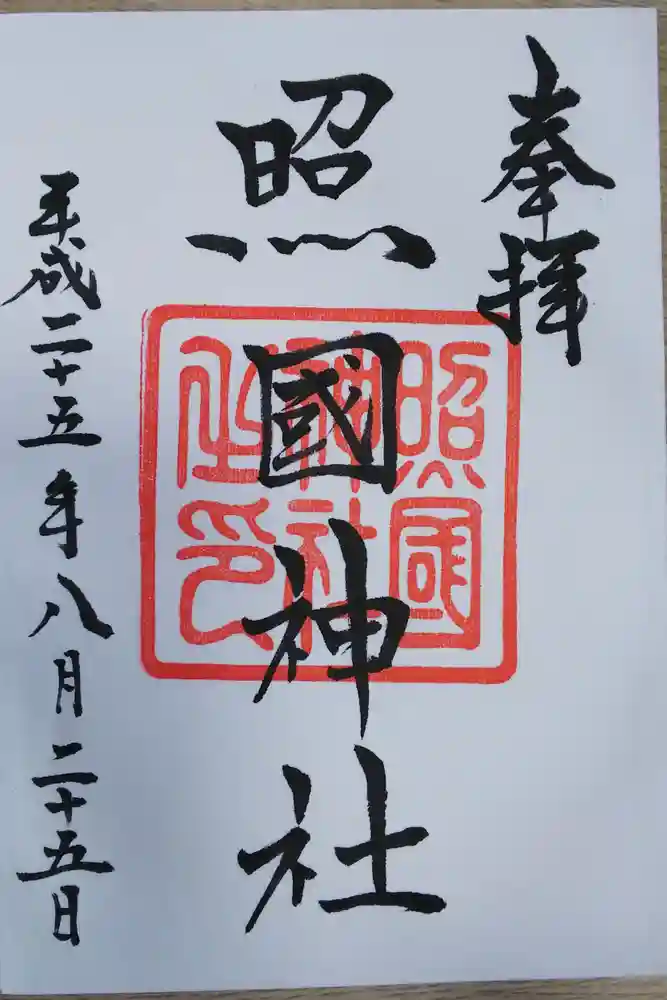 奉拝
照國神社
照国
神社
之印
平成二十五年八月二十五日